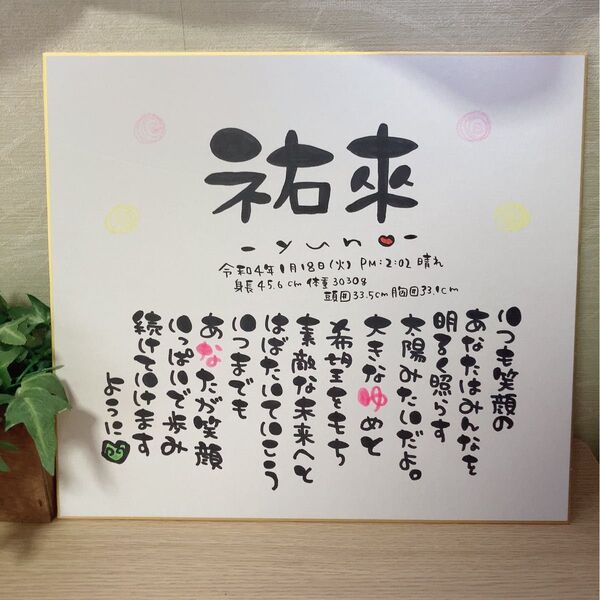 祐来
-yuna-
令和4年1月18日(火) PM:2:02 晴れ
身長45.6cm 体重3030g
頭囲33.5cm 胸囲33.1cm
いつも笑顔の
あなたはみんなを
明るく照らす
太陽みたいだよ。
大きなゆめと
希望をもち
素敵な未来へと
はばたいていこう
いつまでも
あなたが笑顔
いっぱいで歩み
続けていけます
ように